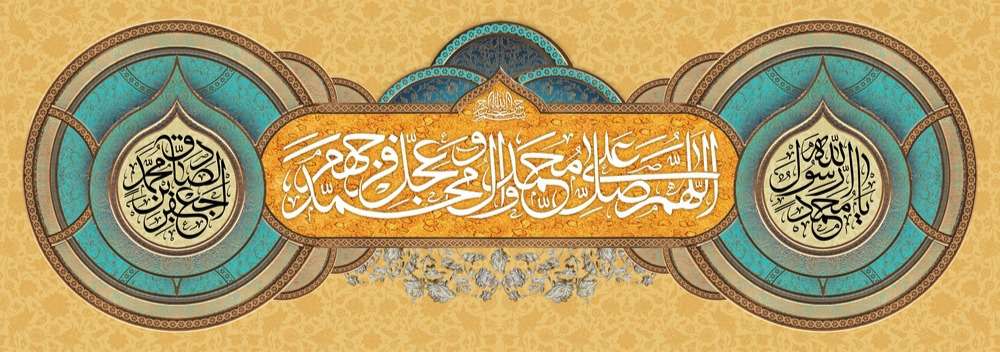 بسم الله الرحمن الرحیم
یا محمد الرسول الله
اللهم صل علی محمد و آل محمد و عجل فرجهم
جعفر بن محمد الصادق